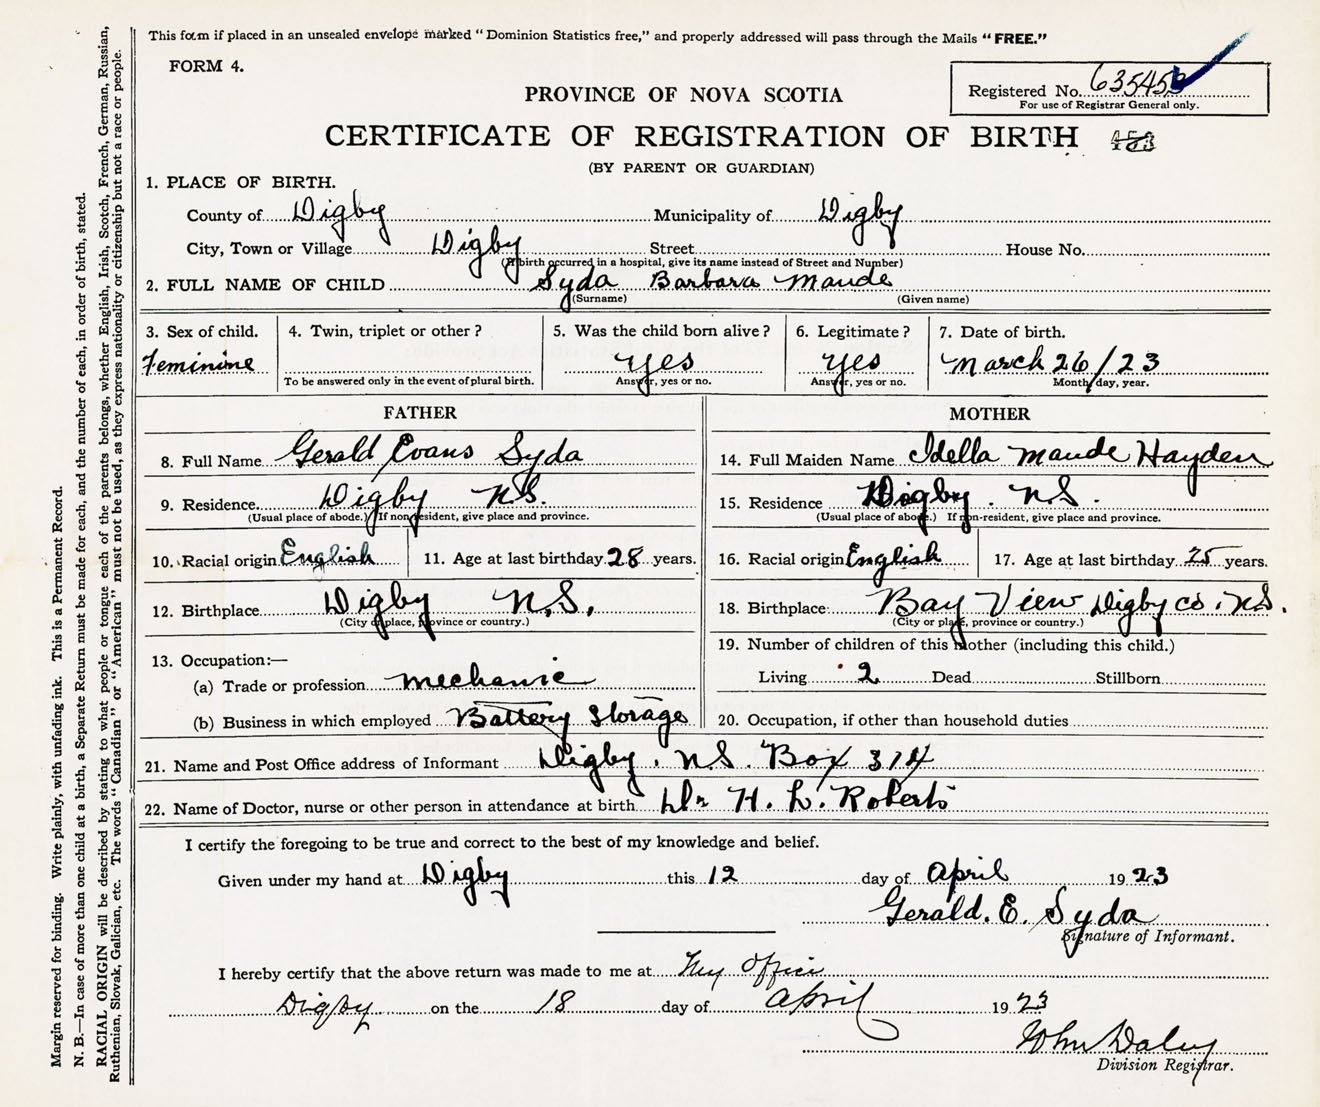 This form if placed in an unsealed envelope marked "Dominion Statistics free," and properly addressed will pass through the Mails "FREE."
FORM 4.
Registered No. 635453
For use of Registrar General only.
PROVINCE OF NOVA SCOTIA
CERTIFICATE OF REGISTRATION OF BIRTH
(BY PARENT OR GUARDIAN)
1. PLACE OF BIRTH.
County of Digby Municipality of Digby
City, Town or Village Digby Street House No.
(If birth occurred in a hospital, give its name instead of Street and Number)
2. FULL NAME OF CHILD Syda Barbara Maude
(Surname) (Given name)
3. Sex of child. 4. Twin, triplet or other? 5. Was the child born alive? 6. Legitimate? 7. Date of birth.
Feminine yes yes March 26/23
To be answered only in the event of plural birth. Answer, yes or no. Answer, yes or no. Month, day, year.
FATHER
8. Full Name Gerald Evans Syda
9. Residence Digby N.S.
(Usual place of abode.) If non-resident, give place and province.
10. Racial origin English 11. Age at last birthday 28 years.
12. Birthplace Digby N.S.
(City or place, province or country.)
13. Occupation:—
(a) Trade or profession mechanic
(b) Business in which employed Battery Storage
MOTHER
14. Full Maiden Name Idella Maude Hayden
15. Residence Digby. N.S.
(Usual place of abode.) If non-resident, give place and province.
16. Racial origin English 17. Age at last birthday 25 years.
18. Birthplace Bay View Digby Co. N.S.
(City or place, province or country.)
19. Number of children of this mother (including this child.)
Living 2 Dead Stillborn
20. Occupation, if other than household duties
21. Name and Post Office address of Informant Digby. N.S. Box 314
22. Name of Doctor, nurse or other person in attendance at birth Dr H. L. Roberts
I certify the foregoing to be true and correct to the best of my knowledge and belief.
Given under my hand at Digby this 12 day of April 1923
Gerald. E. Syda
Signature of Informant.
I hereby certify that the above return was made to me at My Office
Digby on the 18 day of April 1923
John Daley
Division Registrar.
Margin reserved for binding. Write plainly, with unfading ink. This is a Permanent Record.
N. B.—In case of more than one child at a birth, a Separate Return must be made for each, and the number of each, in order of birth, stated.
RACIAL ORIGIN will be described by stating to what people or tongue each of the parents belongs, whether English, Irish, Scotch, French, German, Russian,
Ruthenian, Slovak, Galician, etc. The words "Canadian" or "American" must not be used, as they express nationality or citizenship but not a race or people.